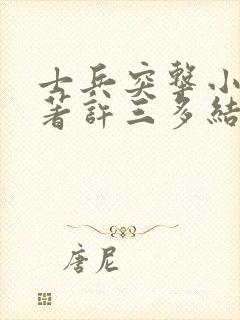 士兵突擊小
著許三多結
唐尼